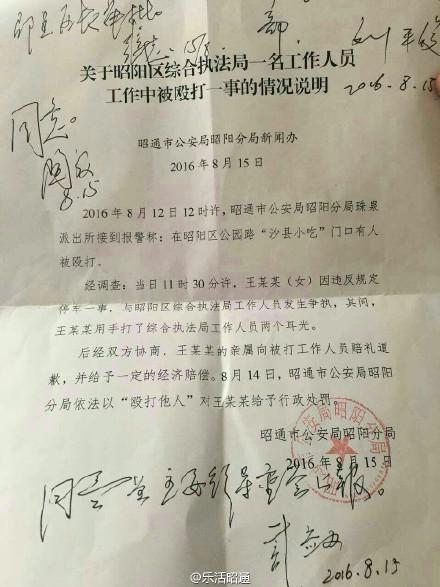 2016.8.15
关于昭阳区综合执法局一名工作人员
工作中被殴打一事的情况说明
同意
8.15
昭通市公安局昭阳分局新闻办
2016年8月15日
2016年8月12日12时许，昭通市公安局昭阳分局珠泉
派出所接到报警称：在昭阳区公园路“沙县小吃”门口有人
被殴打。
经调查：当日11时30分许，王某某（女）因违反规定
停车一事，与昭阳区综合执法局工作人员发生争执，其间，
王某某用手打了综合执法局工作人员两个耳光。
后经双方协商，王某某的亲属向被打工作人员赔礼道
歉，并给予一定的经济赔偿。8月14日，昭通市公安局昭阳
分局依法以“殴打他人”对王某某给予行政处罚。
昭通市公安局昭阳分局
2016年8月15日
2016.8.15
@乐活昭通